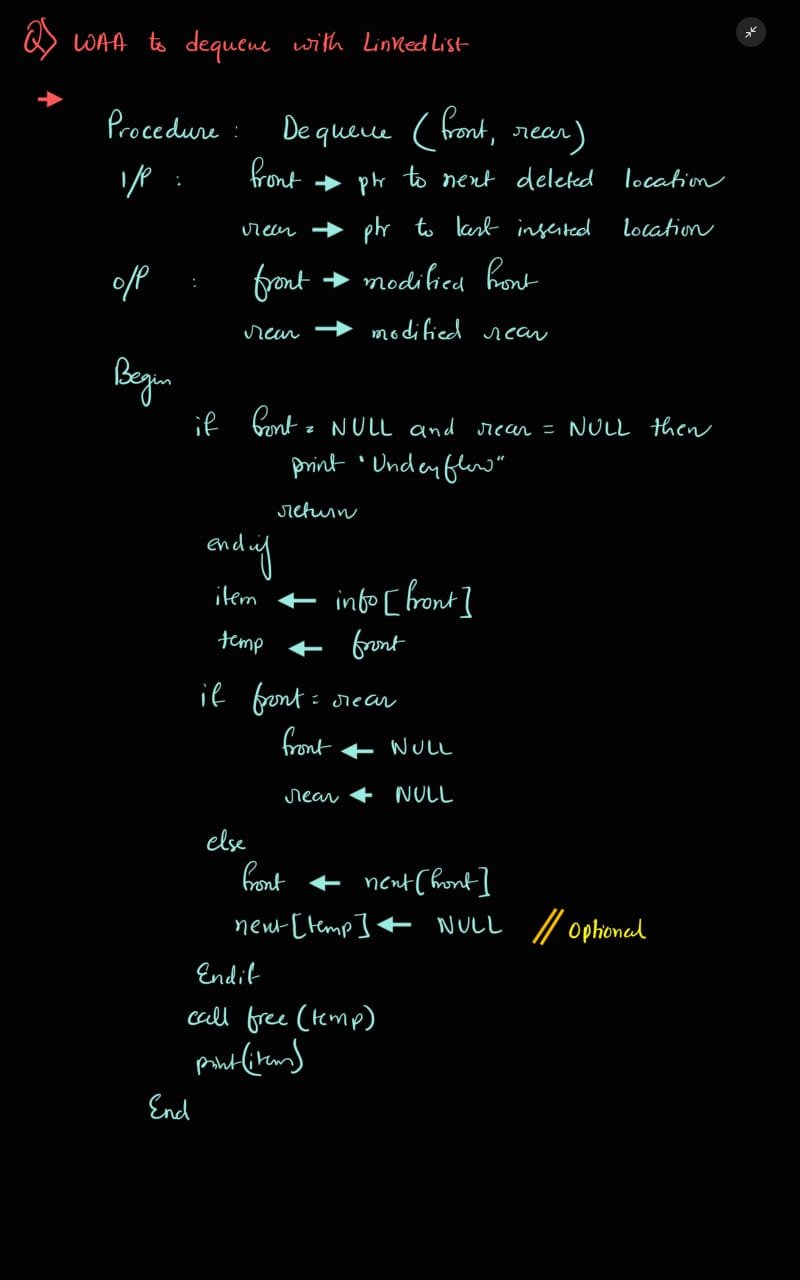 Q) WAA to dequeue with Linked List
→
Procedure : Dequeue (front, rear)
I/P : front → ptr to next deleted location
rear → ptr to last inserted location
O/P : front → modified front
rear → modified rear
Begin
if front = NULL and rear = NULL then
print "Underflow"
return
endif
item ← info[front]
temp ← front
if front = rear
front ← NULL
rear ← NULL
else
front ← next[front]
next[temp] ← NULL // Optional
Endif
call free(temp)
print(item)
End